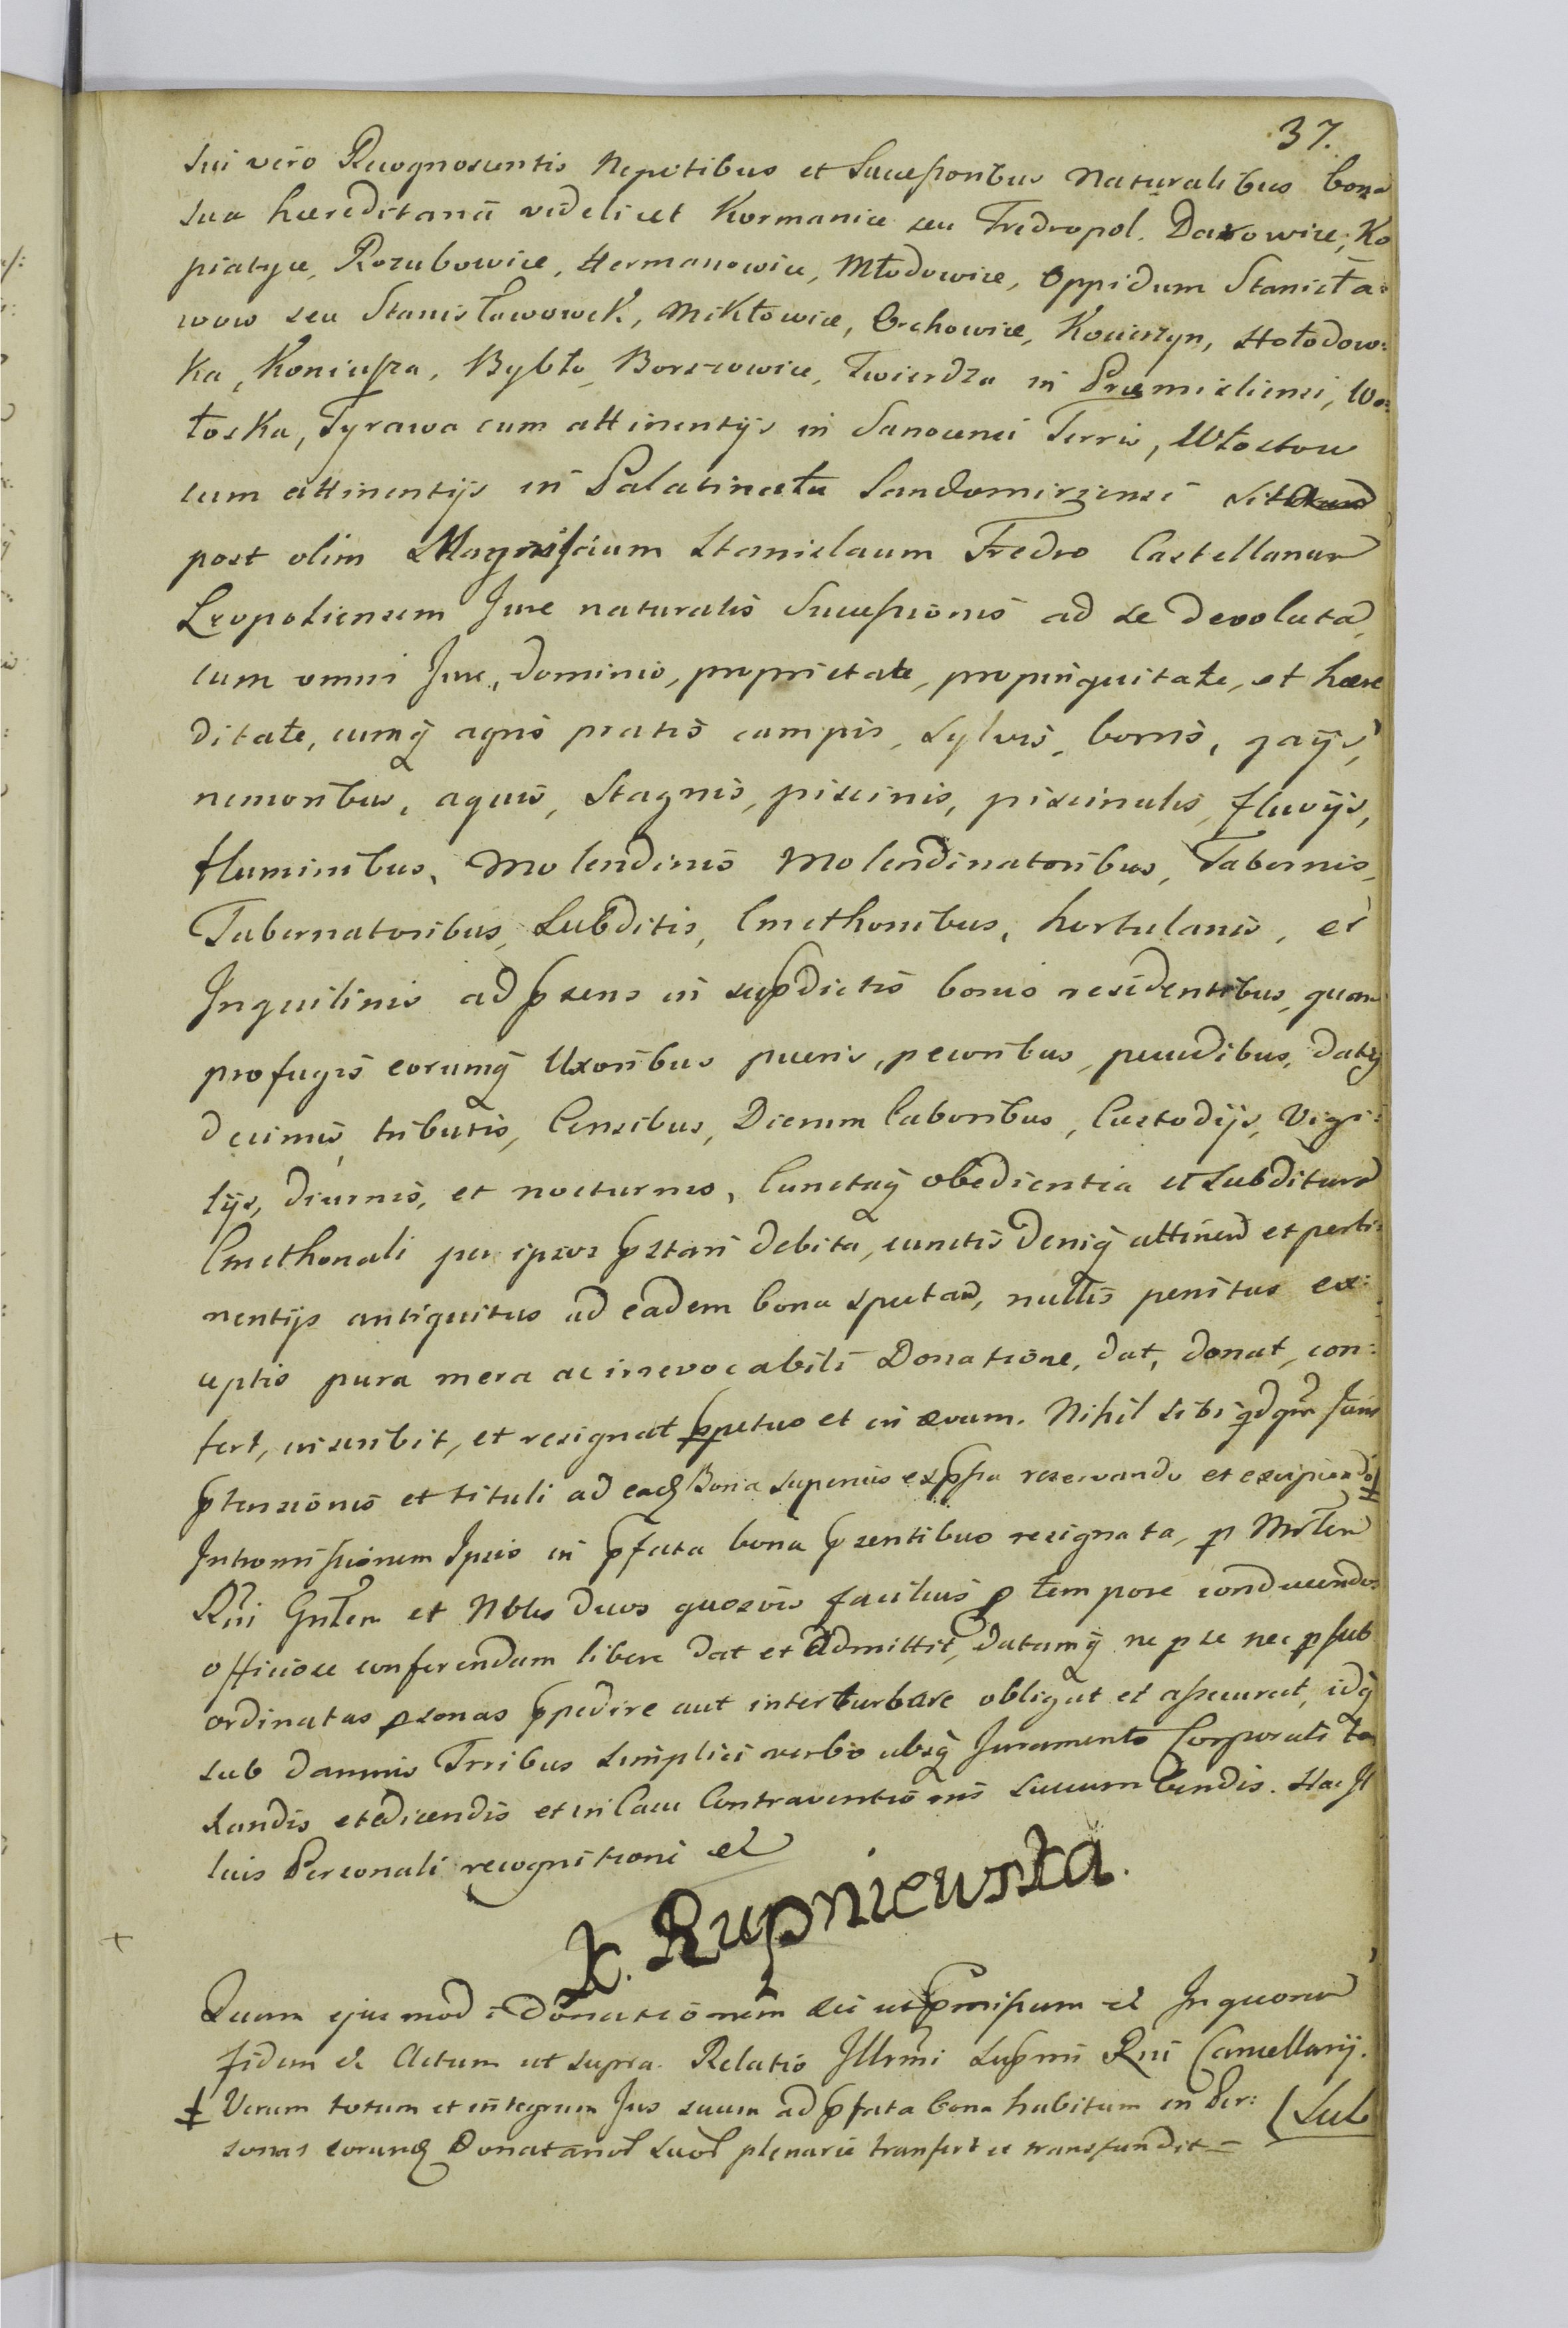 37.
sui vero Recognoscentis Nepotibus et Successoribus Naturalibus bona
sua hæreditaria videlicet Kormanice seu Fredropol. Darowice, Ko
piatyce, Rozubowice, Hermanowice, Młodowice, Oppidum Stanisła:
wow seu Stanisławowek, Mikłowice, Orchowice, Kouiszyn, Hołodow:
ka, Koniusza, Bybło, Borszowice, Twierdza in Præmisliensi, Wo:
łoska, Tyrawa cum attinentijs in Sanocensi Terris, Włostow
cum attinentijs in Palatinatu Sandomirzensi sita
post olim Magnificum Stanislaum Fredro Castellanum
Leopoliensem Jure naturalis Successionis ad se devoluta,
cum omni Jure, dominio, proprietate, propinquitate, et hære
ditate, cumq agris pratis campis, sylvis, borris, gaijs,
nemoribus, aquis, Stagnis, piscinis, piscinulis, fluvijs,
fluminibus, Molendinis Molendinatoribus, Tabernis,
Tabernatoribus, Subditis, Cmethonibus, hortulanis, et
Inquilinis ad psens in supdictis bonis residentibus, quam
profugis eorumq Uxoribus pueris, pecoribus, pecudibus, datys
decimis, tributis, Censibus, Dierum laboribus, Custodijs, Vigi:
lijs, diurnis, et nocturnis, Cunctaq obedientia et subditura
Cmethonali per ipsos pstari debita, cunctis deniq attinen et perti:
nentijs antiquitus ad eadem bona spectan, nullis penitus ex:
ceptis pura mera ac irrevocabili Donatione, dat, donat, con:
fert, inscribit, et resignat ppetuo et in ævum. Nihil sibi qdqm Juris
ptensionis et tituli ad eaq Bona superius expssa reservando et excipiendo ‡
Intromissionem Ipsis in pfata bona psentibus resignata, p Mrlem
Rni Gnlem et Nbles duos quosvis facilius p tempore conducendos
officiose conferendam libere dat et admittit, datamq ne p se nec p sub
ordinatas psonas ppedire aut interturbare obligat et assecurat, idq
sub damnis Trribus simplici verbo absq Juramento Corporali ta
xandis et edicendis et in Casu Contraventionis succumbendis. Hac Il
lius Personali recognitioni et
K. Rupniewska.
+
Quam ejusmodi Donationem sic ut pmissum et In quorum
fidem et Actum ut supra. Relatio Illrmi supmi Rni Cancellarij.
‡ Verum totum et integrum Jus suum ad pfata bona habitum in Per: (Sub
sonas eorundq Donatarior suor plenarie transfert et transfundit =